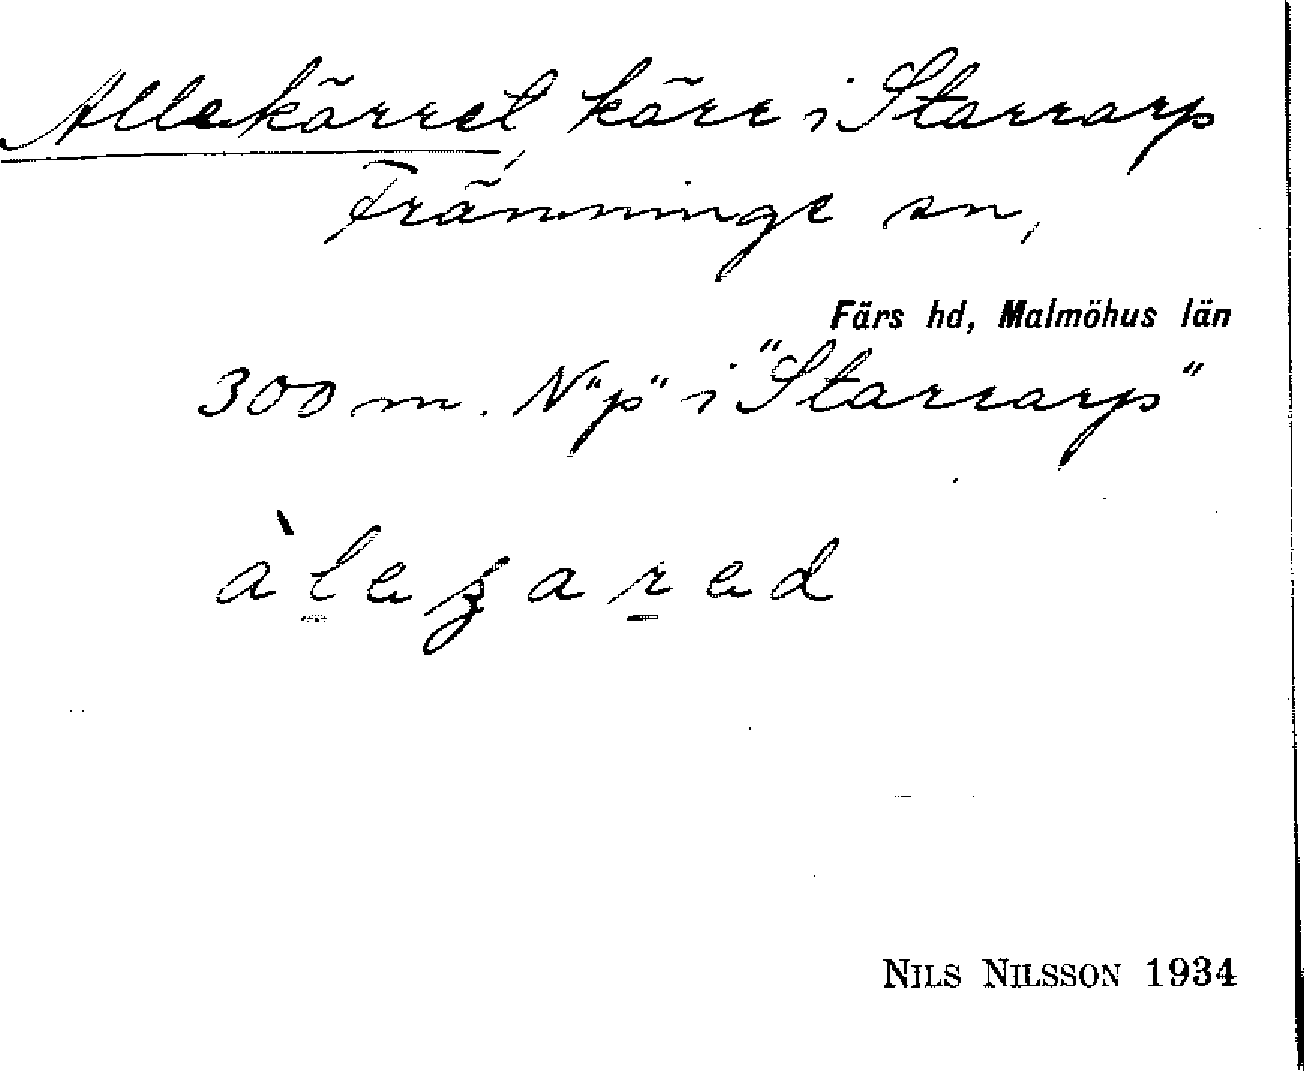 Allekärret, kärr i Starrarp
Fränninge sn,
Färs hd, Malmöhus län
300 m. N "p" i "Starrarp"
NILS NILSSON 1934